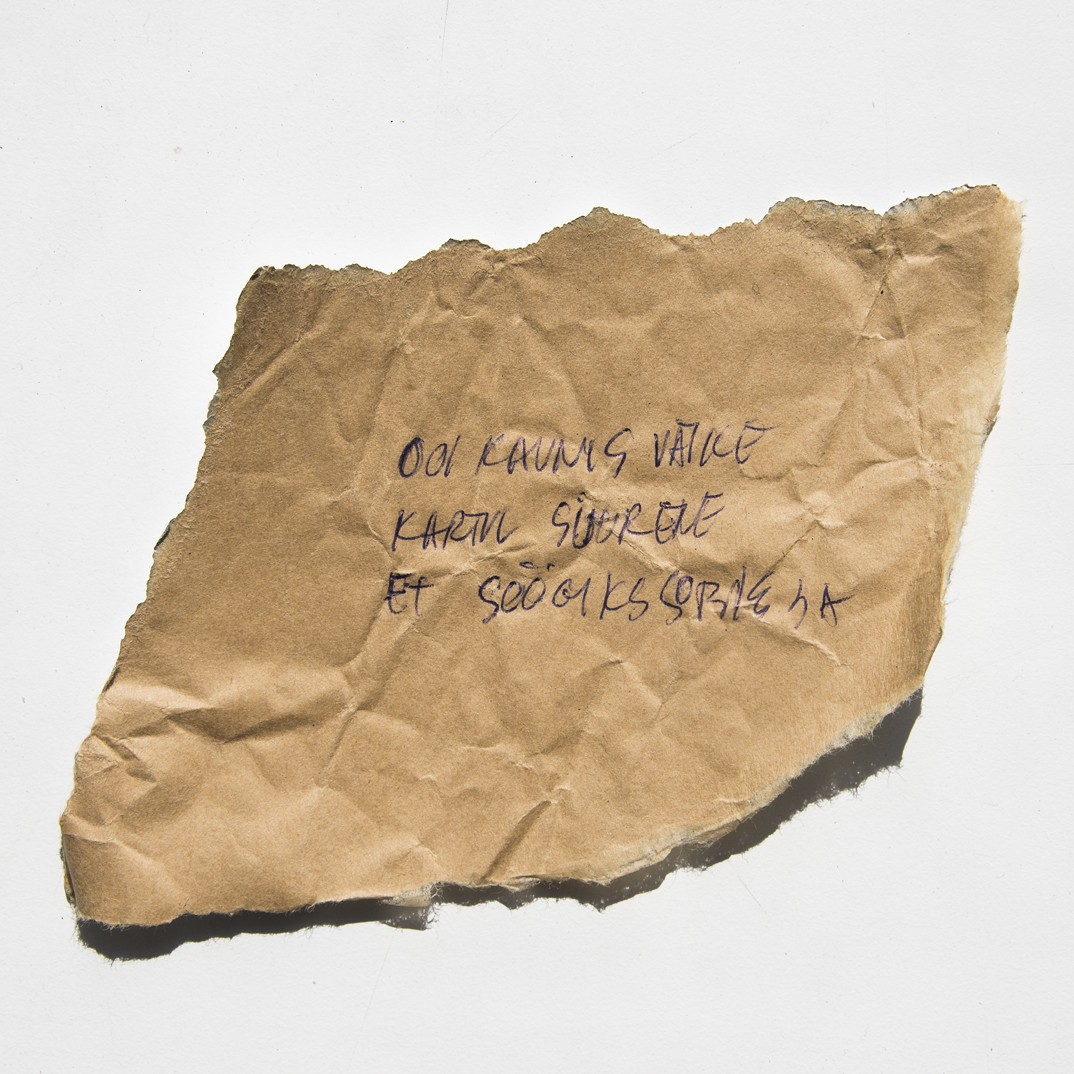 OOI KAUNIS VÄIKE
KARTUL SUURENE
ET SÖÖGIKS SOBIKS JA